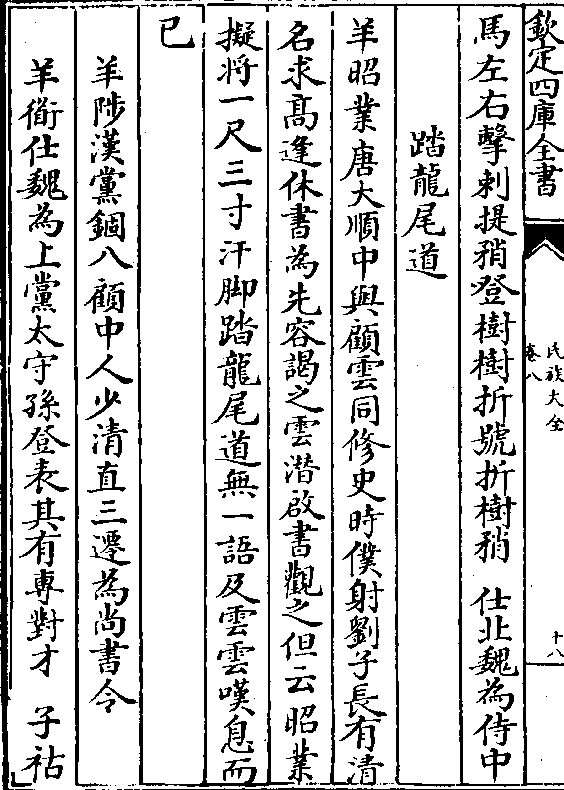 欽定四庫全書
氏族大全
卷八
十八
馬左右擊刺提矟登樹樹折號折樹矟　仕北魏為侍中
踏龍尾道
羊昭業唐大順中與顧雲同修史時僕射劉子長有清
名求高逢休書為先容謁之雲潛啟書觀之但云昭業
擬將一尺三寸汗脚踏龍尾道無一語及雲雲嘆息而
已
羊陟漢黨錮八顧中人少清直三遷為尚書令
羊衜仕魏為上黨太守孫登表其有專對才　子祜